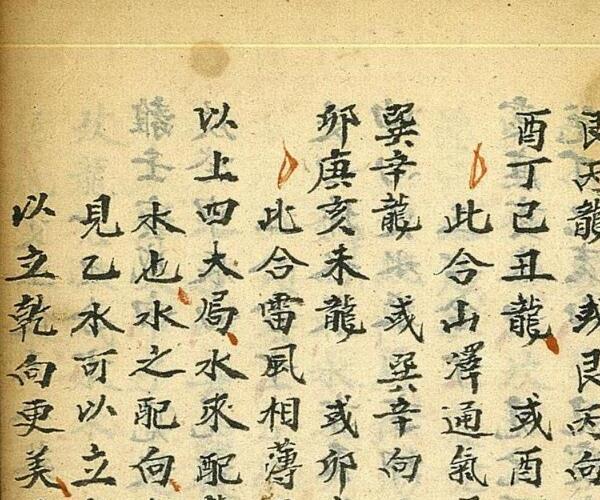 艮丙龍 或艮丙向
酉丁巳丑龍 或酉
此合山澤通氣
巽辛龍 或巽辛向
卯庚亥未龍 或卯
此合雷風相薄
以上四大局水來配
水也水之配向
見乙水可以立
以立乾向更美